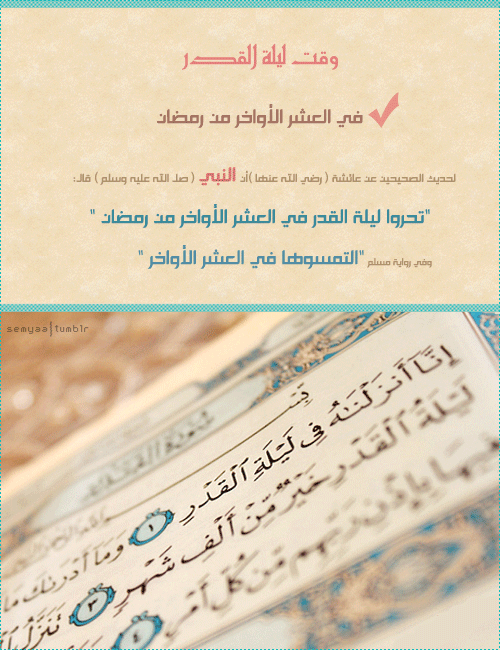 وقت ليلة القدر
في العشر الأواخر من رمضان
لحديث الصحيحين عن عائشة ( رضي الله عنها )أن النبي ( صل الله عليه وسلم ) قال:
"تحروا ليلة القدر في العشر الأواخر من رمضان "
وفي رواية مسلم "التمسوها في العشر الأواخر "
semyaa|tumblr
إِنَّا أَنزَلْنَٰهُ فِي لَيْلَةِ ٱلْقَدْرِ ١ وَمَا أَدْرَىٰكَ مَا
لَيْلَةُ ٱلْقَدْرِ خَيْرٌ مِّنْ أَلْفِ شَهْرٍ ٣ تَنَزَّلُ
فِيهَا بِإِذْنِ رَبِّهِم مِّن كُلِّ أَمْرٍ ٤